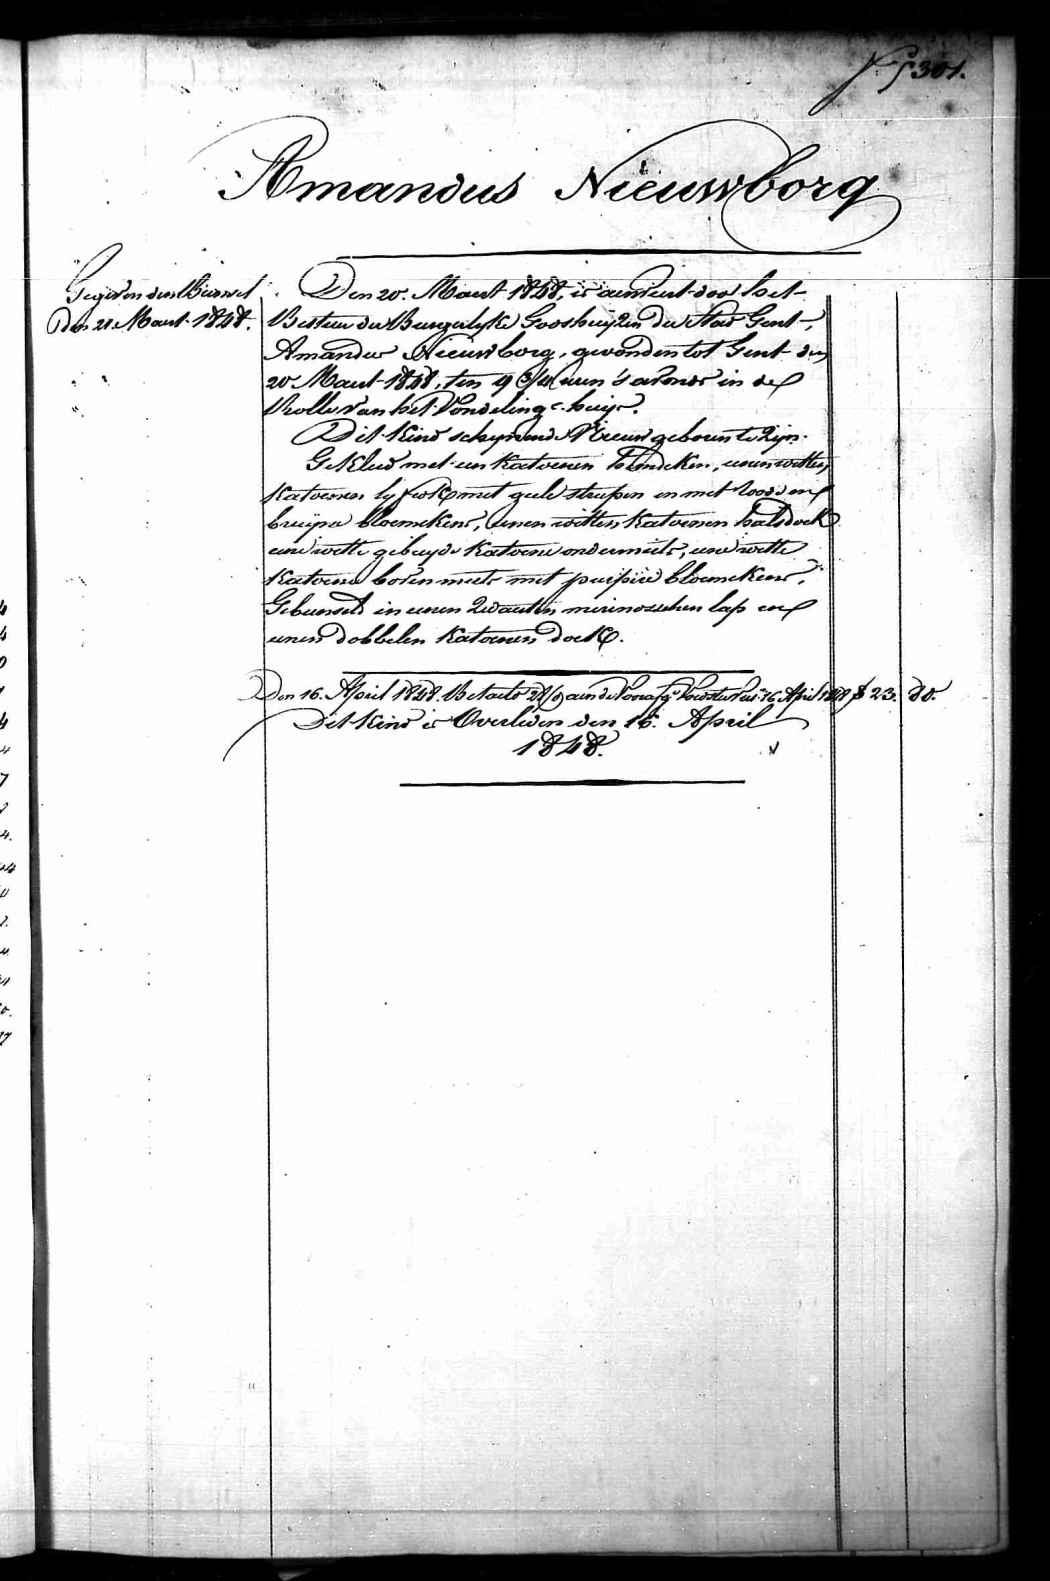 301.
Amandus Nieuwborg
Gegeven den Bunsel
den 21 Maert 1848.
Den 20. Maert 1848, is aenveert door het
Bestuer der Burgerlyke Godshuyzen der Stad Gent,
Amandus Nieuwborg, gevonden tot Gent den
20 Maert 1848, ten 9 3/4 uren 's avonds in de
Rolle van het Vondelings-huys.
Dit kind schynende Nieuw geboren te zijn.
Gekleed met een katoenen hemdeken, eenen witten
katoenen lyfrok met gele strepen en met roode en
bruyne bloemekens, eenen witten katoenen halsdoek
eene witte gebreyde katoene ondermuts, eene witte
katoene bovenmuts met purpere bloemekens.
Gebunseld in eenen zwarten merinosschen lap en
eenen dobbelen katoenen doek.
Den 16. April 1848. Betaeld aen de 16 April 1848 23. 80.
Dit kind is Overleden den 16. April
1848.
4
4
0
1
4
4
7
2
4.
44
0
2.
4
4
0.
17